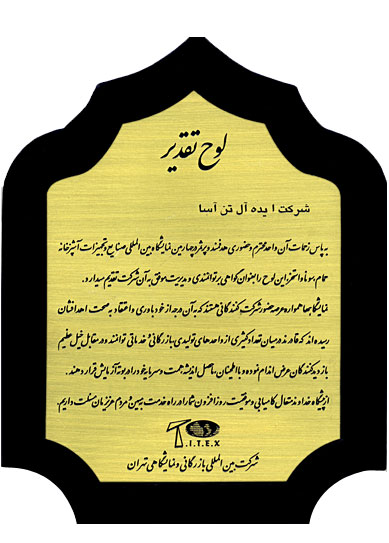 لوح تقدیر
شرکت ایده آل تن آسا
به پاس زحمات آن واحد محترم و حضوری هدفمند و پرثمر در چهارمین نمایشگاه بین المللی صنایع و تجهیزات آشپزخانه
حمام، سونا و استخر این لوح را بعنوان گواهی بر توانمندی و مدیریت موفق به آن شرکت تقدیم میدارد.
نمایشگاهها همواره عرصه حضور شرکت کنندگانی هستند که به آن درجه از خودباوری و اعتقاد به صحت اهدافشان
رسیده اند که قادرند در میان تعداد کثیری از واحدهای تولیدی بازرگانی و خدماتی توانمند و در مقابل خیل عظیم
بازدیدکنندگان عرض اندام نموده و با اطمینان ماحصل اندیشه همت و سرمایه خود را به بوته آزمایش قرار دهند.
از پیشگاه خداوند متعال کامیابی و موفقیت روزافزون شما را در راه خدمت به میهن و مردم عزیزمان مسئلت داریم.
T.I.T.E.X
شرکت بین المللی بازرگانی و نمایشگاهی تهران